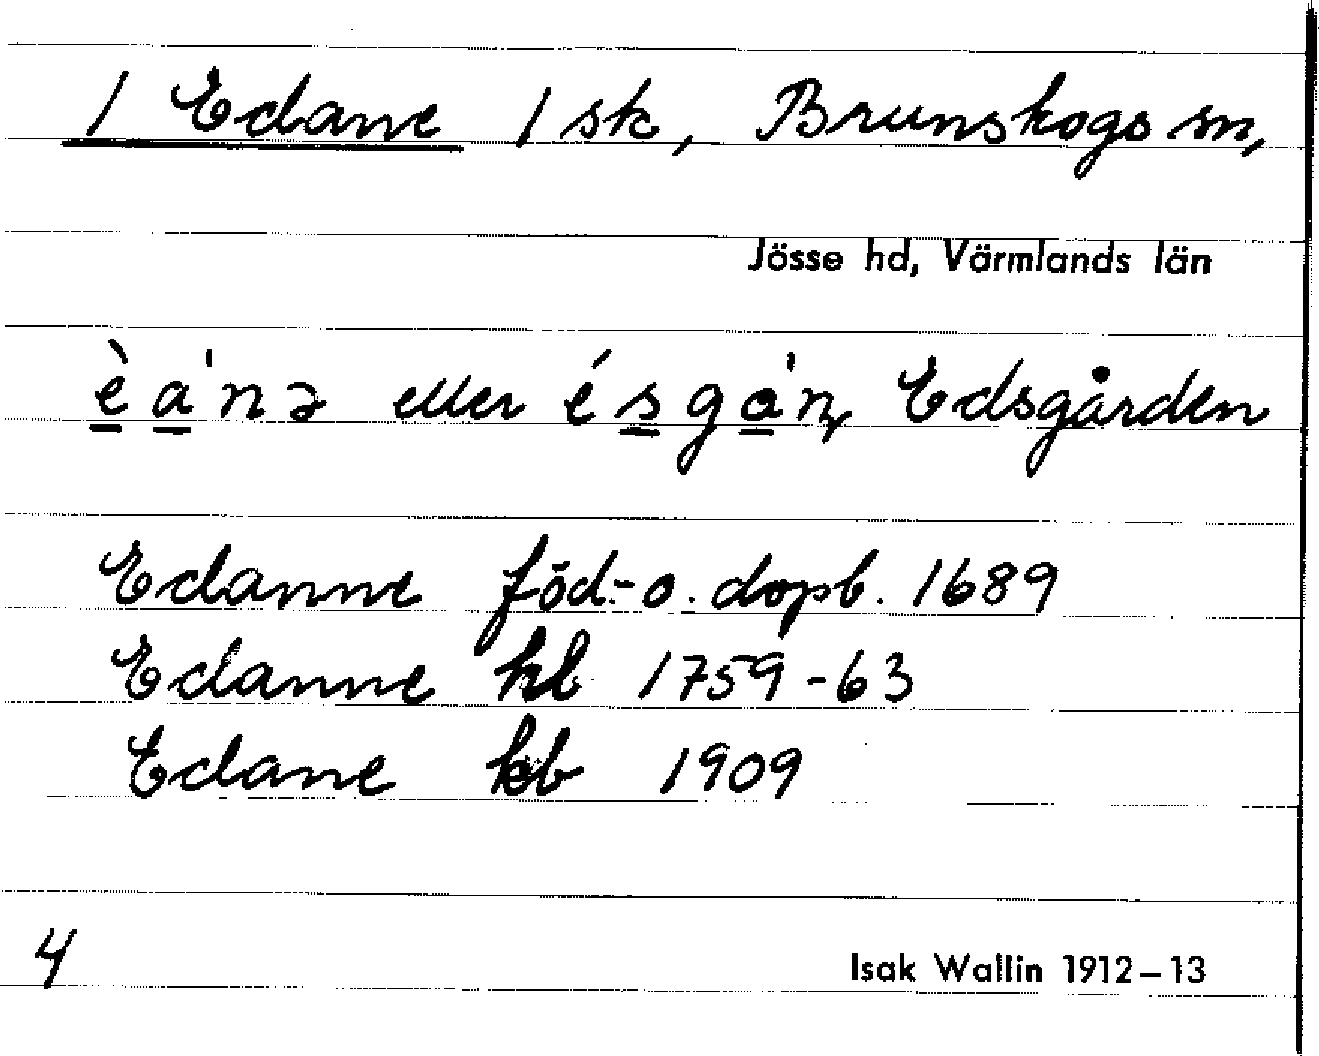 1 Edane 1 sk, Brunskogs sn,
Jösse hd, Värmlands län
è a ̍n ə eller é s g å ̍n̨ Edsgården
Edanne föd:- o. dopb. 1689
Edanne hl 1759-63
Edane kb 1909
4
Isak Wallin 1912–13